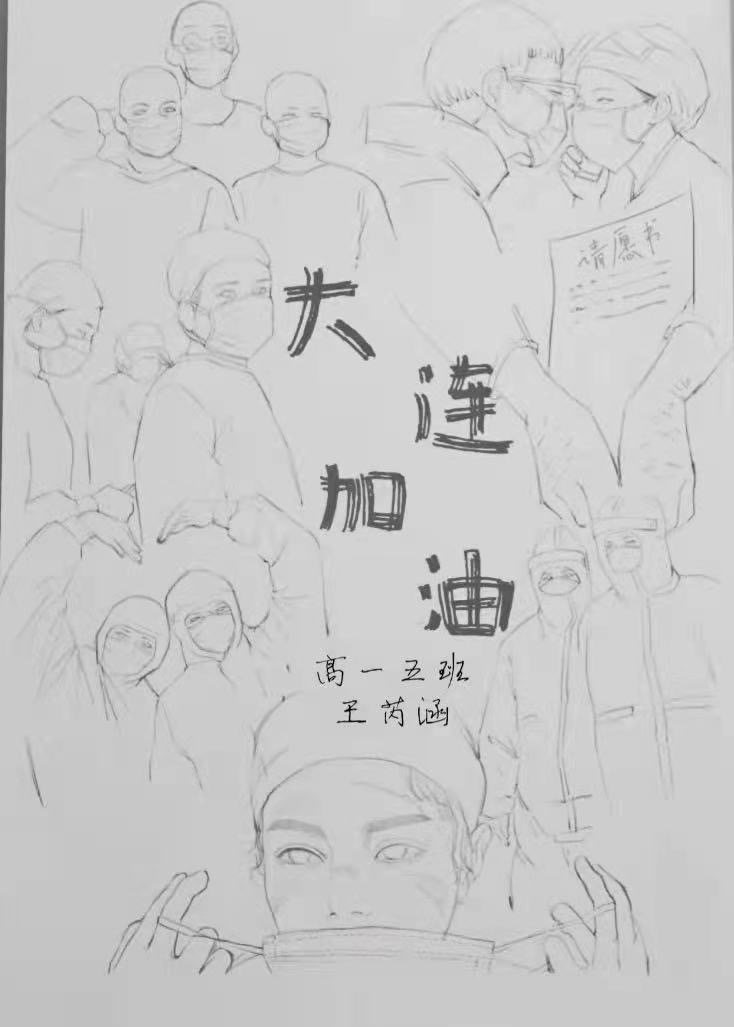 请愿书
大
连
加
油
高一五班
王芮涵